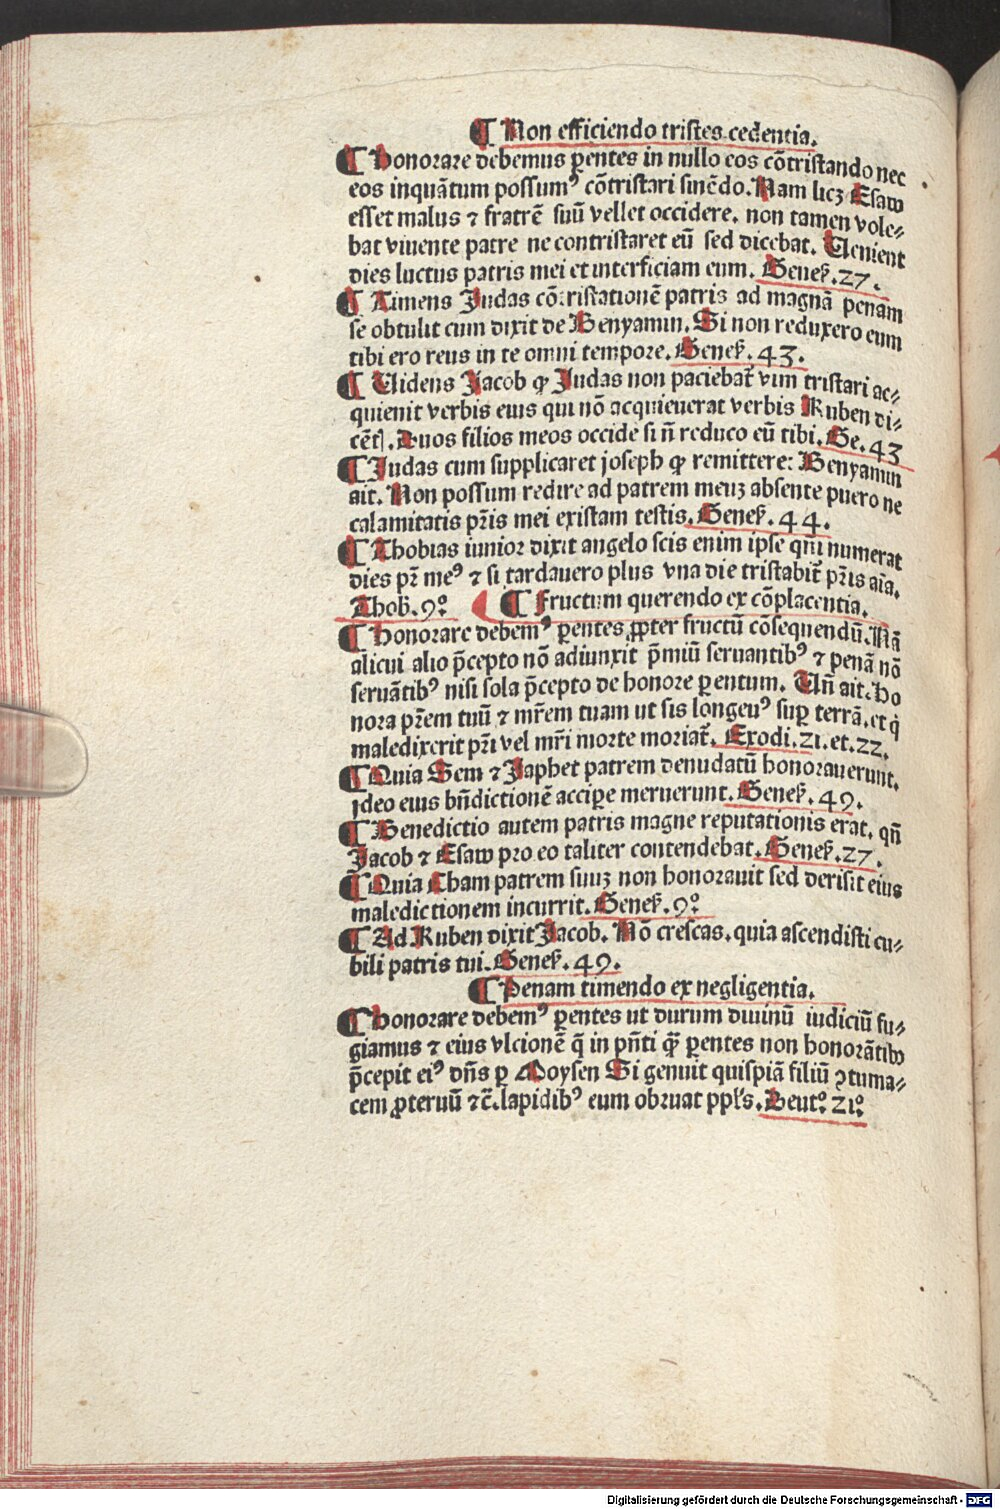 ¶ Non efficiendo tristes cedentia.
¶ Honorare debemus ꝑentes in nullo eos cõtristando nec
eos inquãtum possumꝰ cõtristari sinẽdo. Nam licꝫ Esaw
esset malus ⁊ fratrẽ suũ vellet occidere. non tamen vole⸗
bat viuente patre ne contristaret eũ sed dicebat. Uenient
dies luctus patris mei et interficiam eum. Geneẜ. 27.
¶ Timens Judas cõtristationẽ patris ad magnã penam
se obtulit cum dixit de Benyamin. Si non reduxero eum
tibi ero reus in te omni tempore. Geneẜ. 43.
¶ Uidens Jacob ꝙ Judas non paciebat᷑ vim tristari ac⸗
quieuit verbis eius qui nõ acquieuerat verbis Ruben di⸗
cẽtꝭ. Duos filios meos occide si n̄ reduco eũ tibi. Ge. 43
¶ Judas cum supplicaret joseph ꝙ remittere: Benyamin
ait. Non possum redire ad patrem meuꝫ absente puero ne
calamitatis pr̄is mei existam testis. Geneẜ. 44.
¶ Thobias iunior dixit angelo scis enim ipse qui numerat
dies pr̄ meꝰ ⁊ si tardauero plus vna die tristabit᷑ pr̄is aĩa.
Thob. 9°. ¶ Fructum querendo ex cõplacentia.
¶ Honorare debemꝰ ꝑentes ꝓpter fructũ cõsequendũ. Nã
alicui alio p̄cepto nõ adiunxit p̄miũ seruantibꝰ ⁊ penã nõ
seruãtibꝰ nisi sola p̄cepto de honore ꝑentum. Un̄ ait. Ho
nora pr̄em tuũ ⁊ mr̄em tuam ut sis longeuꝰ suꝑ terrã. et q̇
maledixerit pr̄i vel mr̄i morte moriat᷑. Exodi. 21. et. 22.
¶ Quia Sem ⁊ Japhet patrem denudatũ honorauerunt.
jdeo eius bñdictionẽ acciꝑe meruerunt. Geneẜ. 49.
¶ Benedictio autem patris magne reputationis erat. qñ
Jacob ⁊ Esaw pro eo taliter contendebat. Geneẜ. 27.
¶ Quia Cham patrem suuꝫ non honorauit sed derisit eius
maledictionem incurrit. Geneẜ. 9°.
¶ Ad Ruben dixit Jacob. Nõ crescas. quia ascendisti cu⸗
bili patris tui. Geneẜ. 49.
¶ Penam timendo ex negligentia.
¶ Honorare debemꝰ ꝑentes ut durum diuinũ iudiciũ fu⸗
giamus ⁊ eius vlcionẽ q̃ in pñti qꝛ ꝑentes non honorãtibꝰ
p̄cepit eiꝰ dñs ꝑ Moysen Si genuit quispiã filiũ ꝯtuma⸗
cem ꝓteruũ ⁊c̃. lapidibꝰ eum obruat ppl̓s. Deut°. 21°.
Digitalisierung gefördert durch die Deutsche Forschungsgemeinschaft - DFG